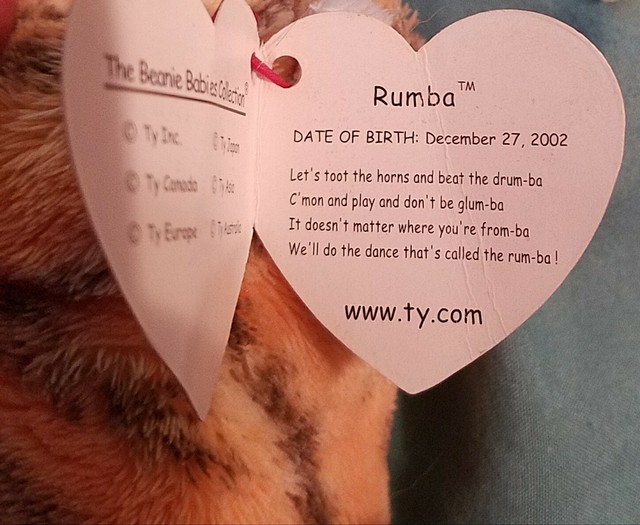 The Beanie Babies Collection®
© Ty Inc. © Ty Japan
© Ty Canada © Ty Asia
© Ty Europe © Ty Australia
Rumba™
DATE OF BIRTH: December 27, 2002
Let's toot the horns and beat the drum-ba
C'mon and play and don't be glum-ba
It doesn't matter where you're from-ba
We'll do the dance that's called the rum-ba !
www.ty.com